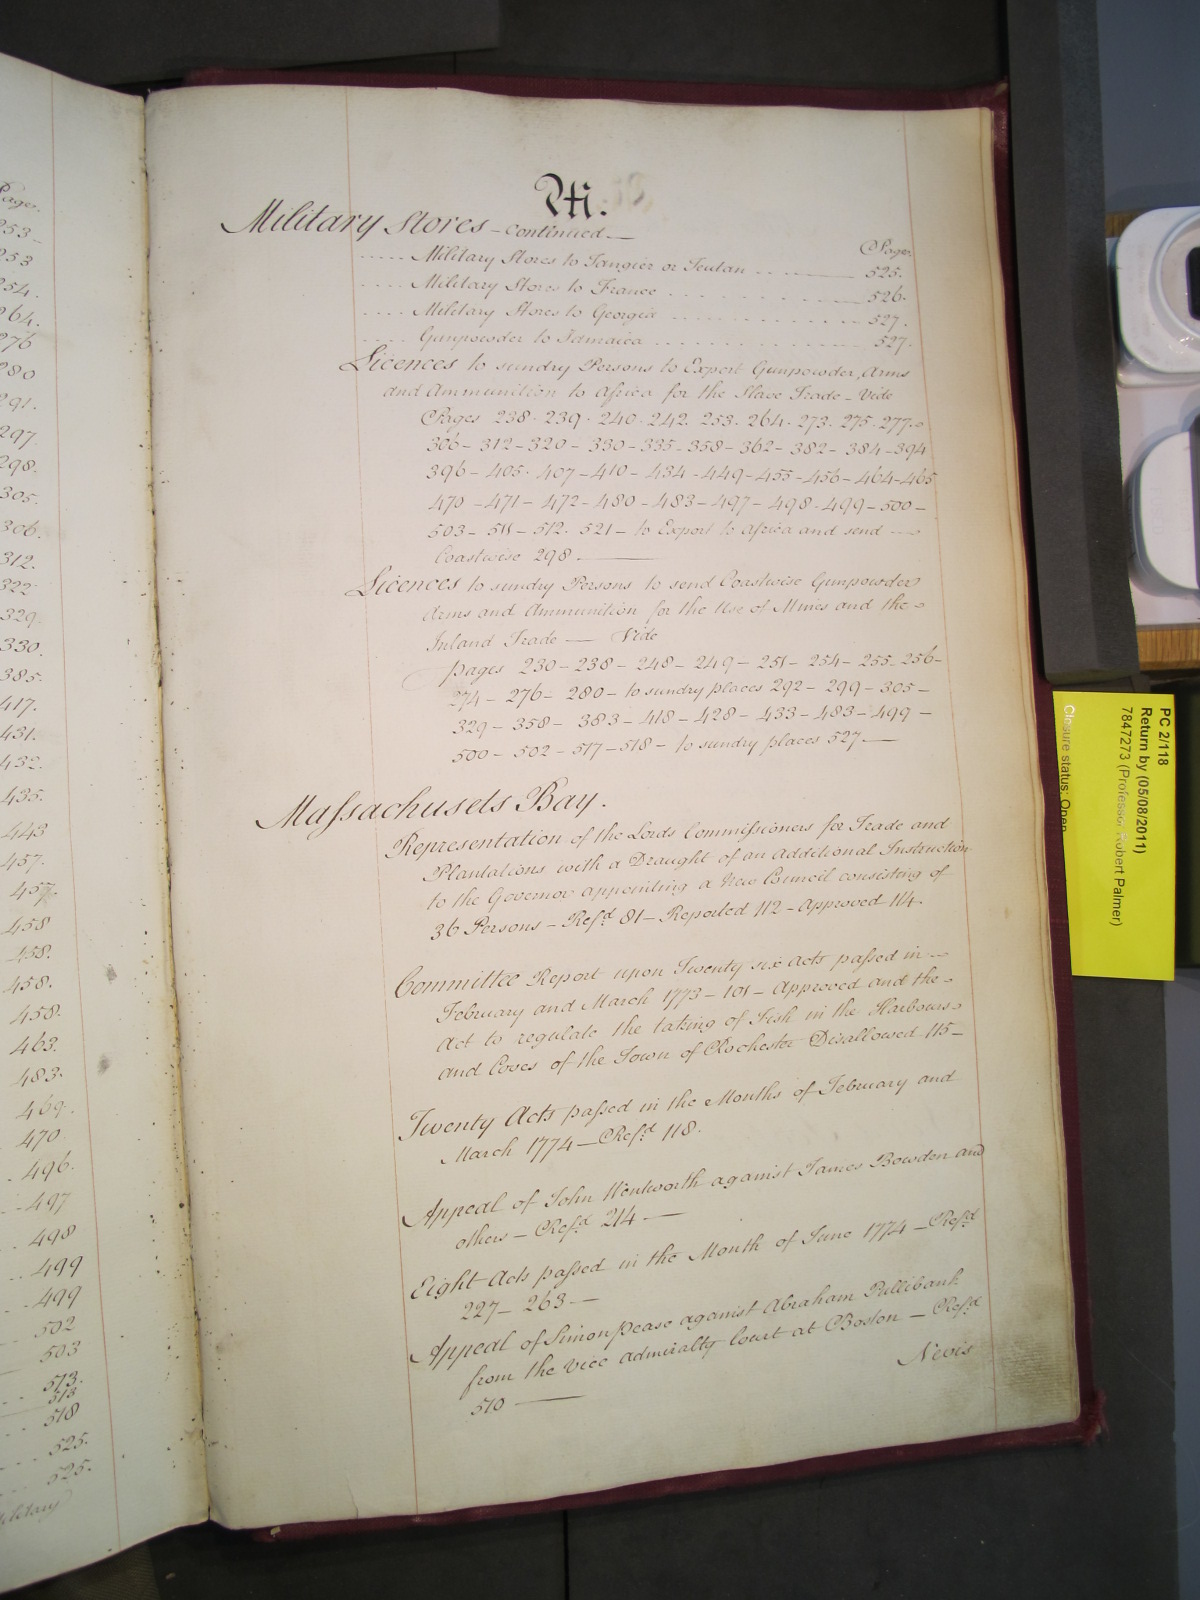 Page.
253
253
254.
264.
276
280
291.
297.
298.
305.
306.
312.
322
329
330.
385.
417.
431.
432.
435.
443
457.
457.
458
458.
458.
458.
463.
483.
469.
470
496.
497
498
499
499
502
503
513.
513
518
525.
525.
Military
M.
Military Stores - continued
Page.
Military Stores to Tangier or Teutan 525.
Military Stores to France 526.
Military Stores to Georgia 527.
Gunpowder to Jamaica 527.
Licences to sundry Persons to Export Gunpowder, Arms
and Ammunition to Africa for the Slave Trade - Vide
Pages 238. 239. 240. 242. 253. 264. 273. 275. 277.
306 - 312 - 320 - 330 - 335 - 358 - 362 - 382 - 384 - 394
396 - 405. 407 - 410 - 434 - 449 - 455 - 456 - 464 - 465
470 - 471 - 472 - 480 - 483 - 497 - 498. 499 - 500 -
503 - 511 - 512. 521 - to Export to Africa and send
Coastwise 298.
Licences to sundry Persons to send Coastwise Gunpowder
Arms and Ammunition for the Use of Mines and the
Inland Trade — Vide
pages 230 - 238 - 248 - 249 - 251 - 254 - 255 - 256 -
274 - 276 - 280 - to sundry places 292 - 299 - 305 -
329 - 358 - 383 - 418 - 428 - 433 - 483 - 499 -
500 - 502 - 517 - 518 - to sundry places 527 —
Massachusets Bay.
Representation of the Lords Commissioners for Trade and
Plantations with a Draught of an additional Instruction
to the Governor appointing a New Council consisting of
36 Persons - Ref.d 81 - Reported 112 - Approved 114.
Committee Report upon Twenty six Acts passed in
February and March 1773 - 101 - Approved and the
Act to regulate the taking of Fish in the Harbours
and Coves of the Town of Rochester Disallowed 115 -
Twenty Acts passed in the Months of February and
March 1774 — Ref.d 118.
Appeal of John Wentworth against James Bowden and
others - Ref.d 214 —
Eight Acts passed in the Month of June 1774 - Ref.d
227 - 263 —
Appeal of Simon Pease against Abraham Pillibank
from the Vice Admiralty Court at Boston — Ref.d
510 —
Nevis
PC 2/118
Return by (05/08/2011)
7847273 (Professor Robert Palmer)
Closure status: Open